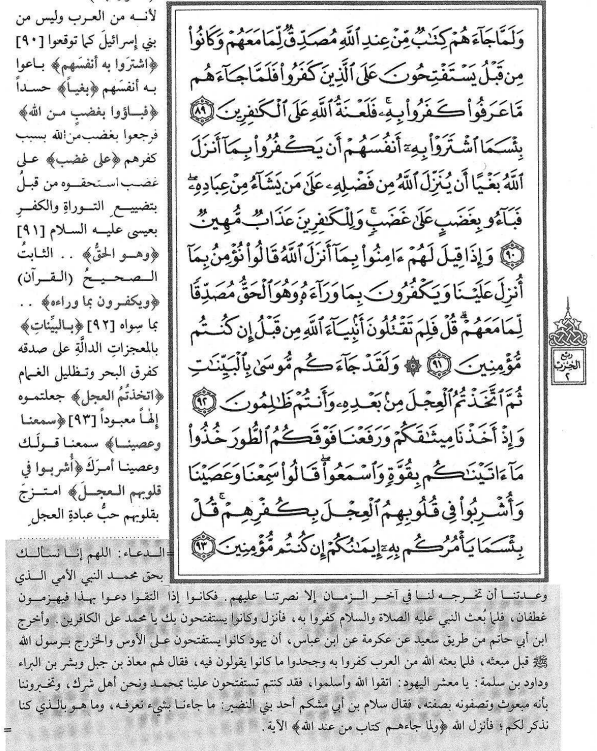 وَلَمَّا جَآءَهُمْ كِتَـٰبٌ مِّنْ عِندِ ٱللَّهِ مُصَدِّقٌ لِّمَا مَعَهُمْ وَكَانُوا۟
مِن قَبْلُ يَسْتَفْتِحُونَ عَلَى ٱلَّذِينَ كَفَرُوا۟ فَلَمَّا جَآءَهُم
مَّا عَرَفُوا۟ كَفَرُوا۟ بِهِۦ ۚ فَلَعْنَةُ ٱللَّهِ عَلَى ٱلْكَـٰفِرِينَ ٨٩
بِئْسَمَا ٱشْتَرَوْا۟ بِهِۦٓ أَنفُسَهُمْ أَن يَكْفُرُوا۟ بِمَآ أَنزَلَ
ٱللَّهُ بَغْيًا أَن يُنَزِّلَ ٱللَّهُ مِن فَضْلِهِۦ عَلَىٰ مَن يَشَآءُ مِنْ عِبَادِهِۦ ۖ
فَبَآءُو بِغَضَبٍ عَلَىٰ غَضَبٍ ۚ وَلِلْكَـٰفِرِينَ عَذَابٌ مُّهِينٌ
٩٠ وَإِذَا قِيلَ لَهُمْ ءَامِنُوا۟ بِمَآ أَنزَلَ ٱللَّهُ قَالُوا۟ نُؤْمِنُ بِمَآ
أُنزِلَ عَلَيْنَا وَيَكْفُرُونَ بِمَا وَرَآءَهُۥ وَهُوَ ٱلْحَقُّ مُصَدِّقًا
لِّمَا مَعَهُمْ ۗ قُلْ فَلِمَ تَقْتُلُونَ أَنۢبِيَآءَ ٱللَّهِ مِن قَبْلُ إِن كُنتُم
مُّؤْمِنِينَ ٩١ ۞ وَلَقَدْ جَآءَكُم مُّوسَىٰ بِٱلْبَيِّنَـٰتِ
ثُمَّ ٱتَّخَذْتُمُ ٱلْعِجْلَ مِنۢ بَعْدِهِۦ وَأَنتُمْ ظَـٰلِمُونَ ٩٢
وَإِذْ أَخَذْنَا مِيثَـٰقَكُمْ وَرَفَعْنَا فَوْقَكُمُ ٱلطُّورَ خُذُوا۟
مَآ ءَاتَيْنَـٰكُم بِقُوَّةٍ وَٱسْمَعُوا۟ ۖ قَالُوا۟ سَمِعْنَا وَعَصَيْنَا
وَأُشْرِبُوا۟ فِى قُلُوبِهِمُ ٱلْعِجْلَ بِكُفْرِهِمْ ۚ قُلْ
بِئْسَمَا يَأْمُرُكُم بِهِۦٓ إِيمَـٰنُكُمْ إِن كُنتُم مُّؤْمِنِينَ ٩٣
ربع
الحزب
٢
لأنه من العرب وليس من
بني إسرائيل كما توقعوا [٩٠]
﴿اشتروا به أنفسهم﴾ باعوا
به أنفسهم ﴿بغياً﴾ حسداً
﴿فباؤوا بغضبٍ من الله﴾
فرجعوا بغضب من الله بسبب
كفرهم ﴿على غضب﴾ على
غضب استحقوه من قبلُ
بتضييع التوراة والكفر
بعيسى عليه السلام [٩١]
﴿وهو الحقُّ﴾ .. الثابتُ
الصحيحُ (القرآن)
﴿ويكفرون بما وراءه﴾ ..
بما سواه [٩٢] ﴿بالبيّناتِ﴾
بالمعجزات الدالّة على صدقه
كفرق البحر وتظليل الغمام
﴿اتخذتُمُ العجل﴾ جعلتموه
إلهاً معبوداً [٩٣] ﴿سمعنا
وعصينا﴾ سمعنا قولك
وعصينا أمرَك ﴿أُشربوا في
قلوبهم العجلَ﴾ امتزج
بقلوبهم حبُّ عبادةِ العجل
=الدعاء: اللهم إنا نسألك
بحق محمد النبي الأمي الذي
وعدتنا أن تخرجه لنا في آخر الزمان إلا نصرتنا عليهم. فكانوا إذا التقوا دعوا بهذا فيهزمون
غطفان، فلما بُعث النبي عليه الصلاة والسلام كفروا به، فأنزل وكانوا يستفتحون بك يا محمد على الكافرين. وأخرج
ابن أبي حاتم من طريق سعيد عن عكرمة عن ابن عباس، أن يهود كانوا يستفتحون على الأوس والخزرج برسول الله
ﷺ قبل مبعثه، فلما بعثه الله من العرب كفروا به وجحدوا ما كانوا يقولون فيه، فقال لهم معاذ بن جبل وبشر بن البراء
وداود بن سلمة: يا معشر اليهود: اتقوا الله وأسلموا، فقد كنتم تستفتحون علينا بمحمد ونحن أهل شرك، وتخبروننا
بأنه مبعوث وتصفونه بصفته، فقال سلام بن أبي مشكم أحد بني النضير: ما جاءنا بشيء نعرفه، وما هو بالذي كنا
نذكر لكم؛ فأنزل الله ﴿ولما جاءهم كتاب من عند الله﴾ الآية. =